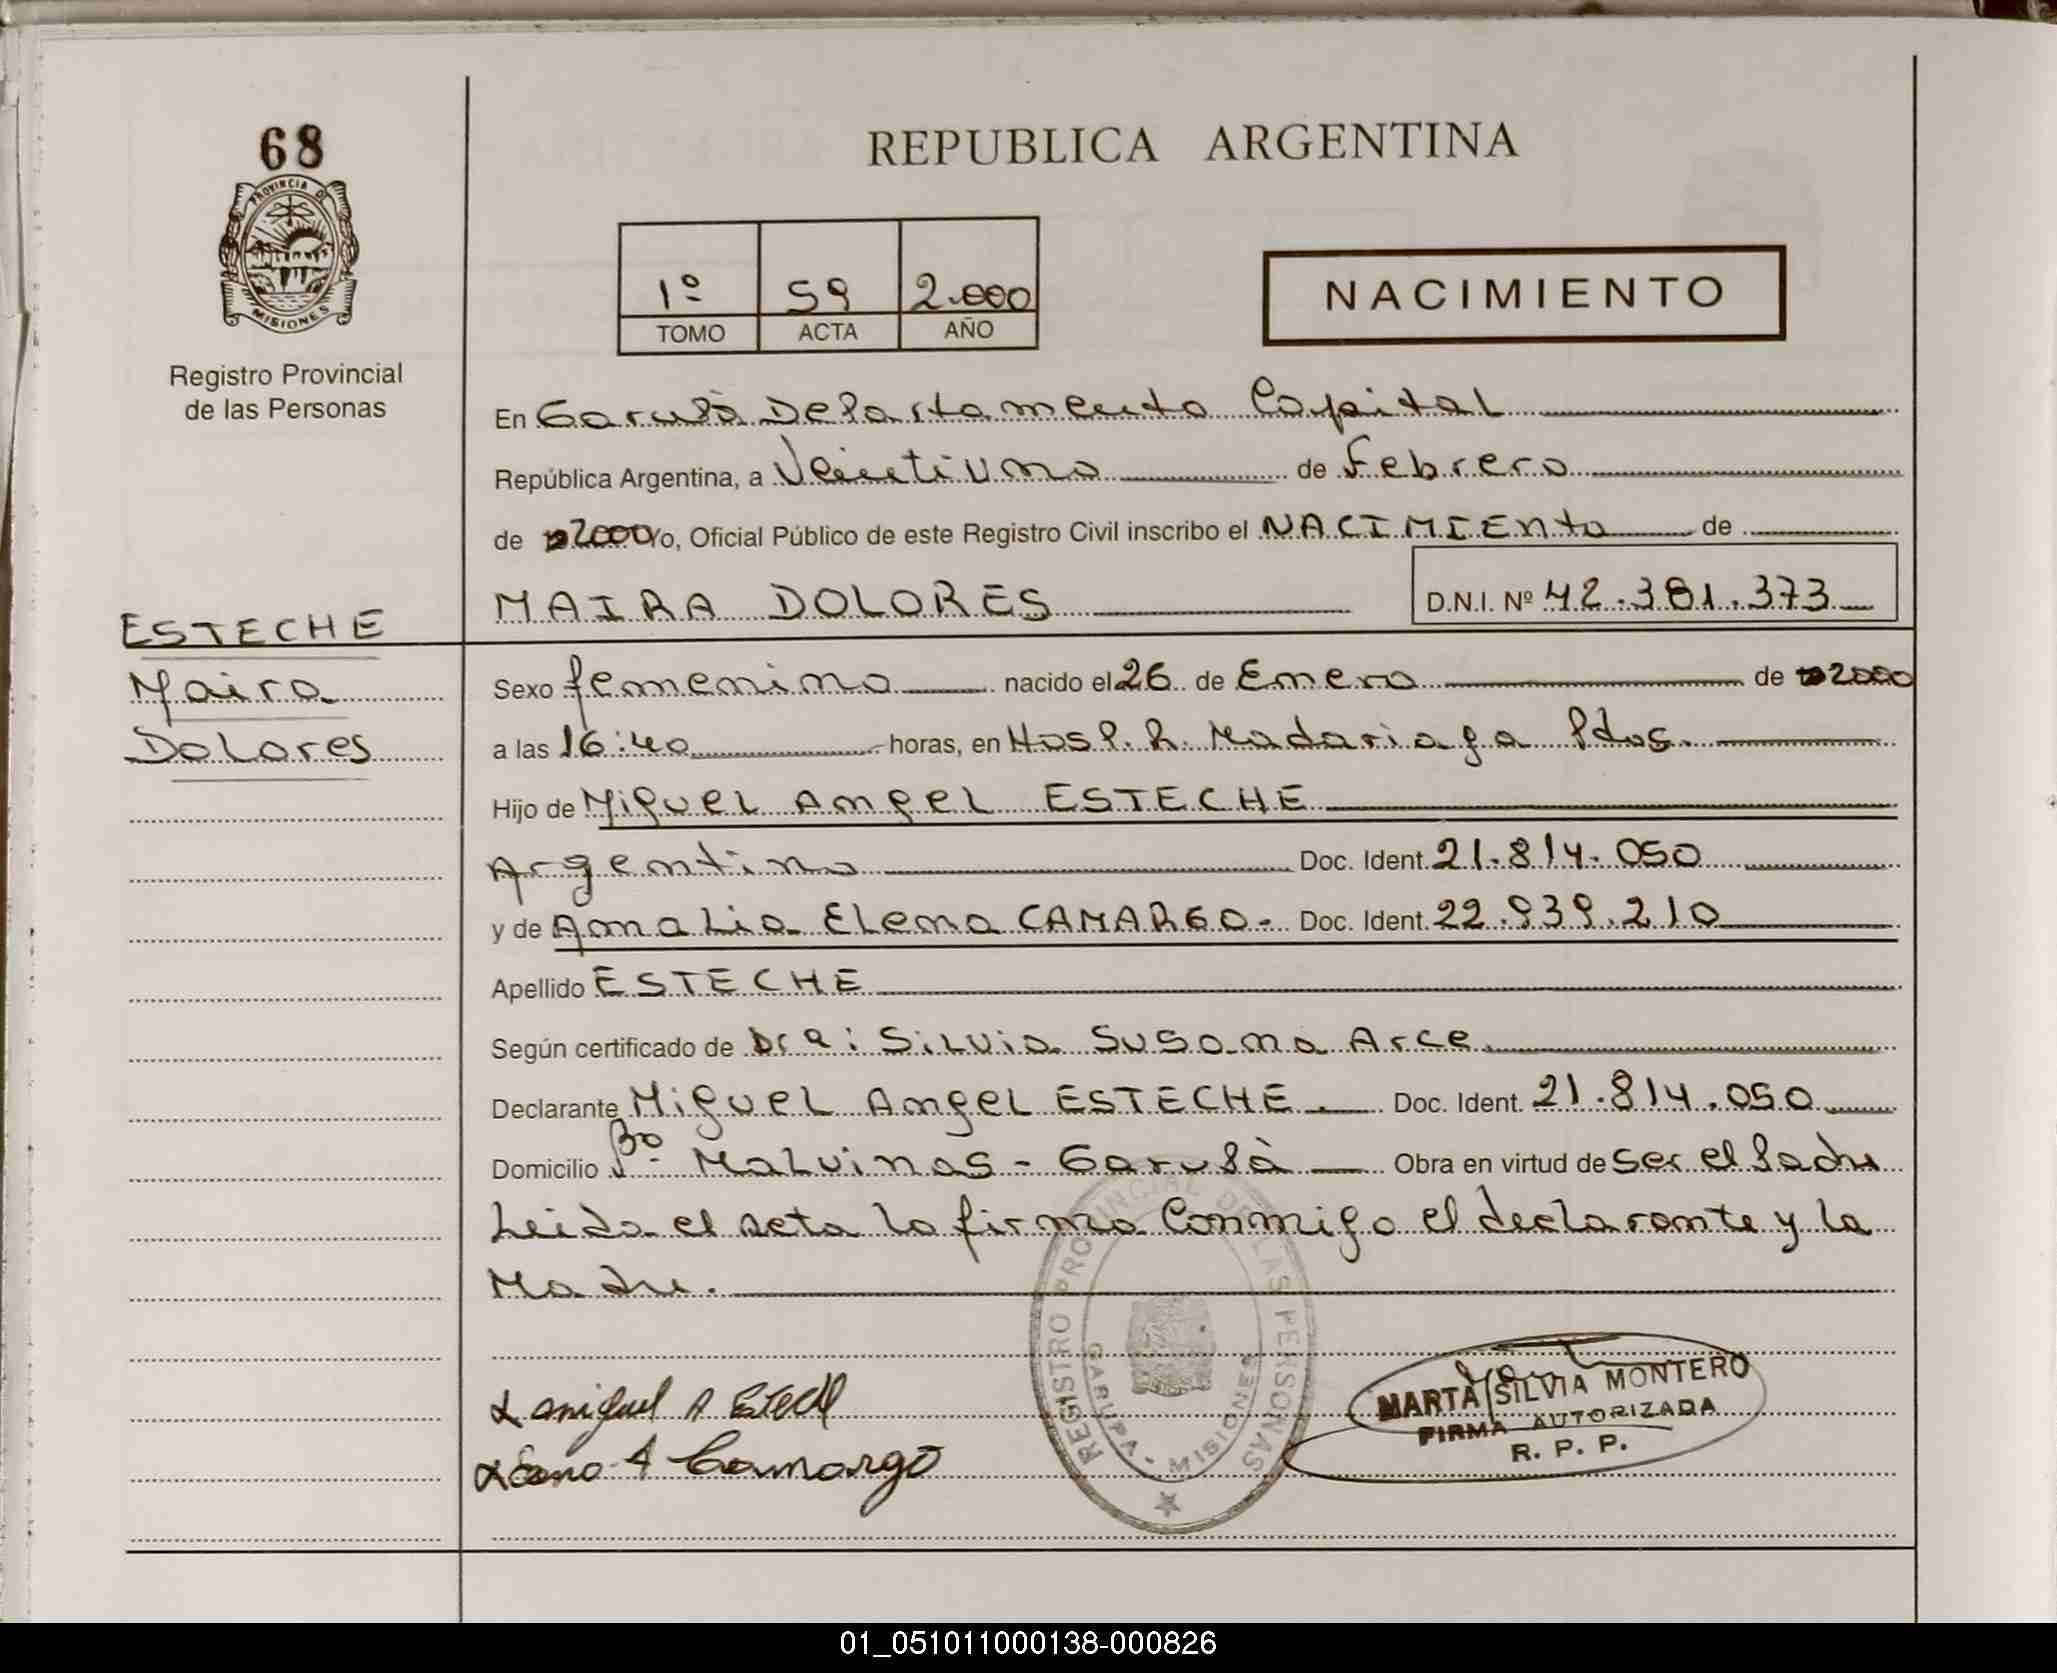 68
PROVINCIA DE
MISIONES
Registro Provincial
de las Personas
REPUBLICA ARGENTINA
1º 59 2.000
TOMO ACTA AÑO
NACIMIENTO
En Garupà Departamento Capital
República Argentina, a Veintiuno de Febrero
de 2000 %, Oficial Público de este Registro Civil inscribo el NACIMIEnto de
MAIRA DOLORES D.N.I. Nº 42.381.373
ESTECHE
Maira
Dolores
Sexo femenino nacido el 26 de Enero de 2000
a las 16:40 horas, en Hosp. R. Madariaga Pdas.
Hijo de Miguel Angel ESTECHE
Argentino Doc. Ident. 21.814.050
y de Amalia Elena CAMARGO.- Doc. Ident. 22.939.210
Apellido ESTECHE
Según certificado de Dra: Silvia Susana Arce
Declarante Miguel Angel ESTECHE. Doc. Ident. 21.814.050
Domicilio Bº Malvinas - Garupà Obra en virtud de ser el Padre
Leida el acta la firma Conmigo el declarante y la
Madre.
REGISTRO PROVINCIAL DE LAS PERSONAS
GARUPA - MISIONES
Miguel A Esteche
A Camargo
MARTA SILVIA MONTERO
FIRMA AUTORIZADA
R. P. P.
01_051011000138-000826